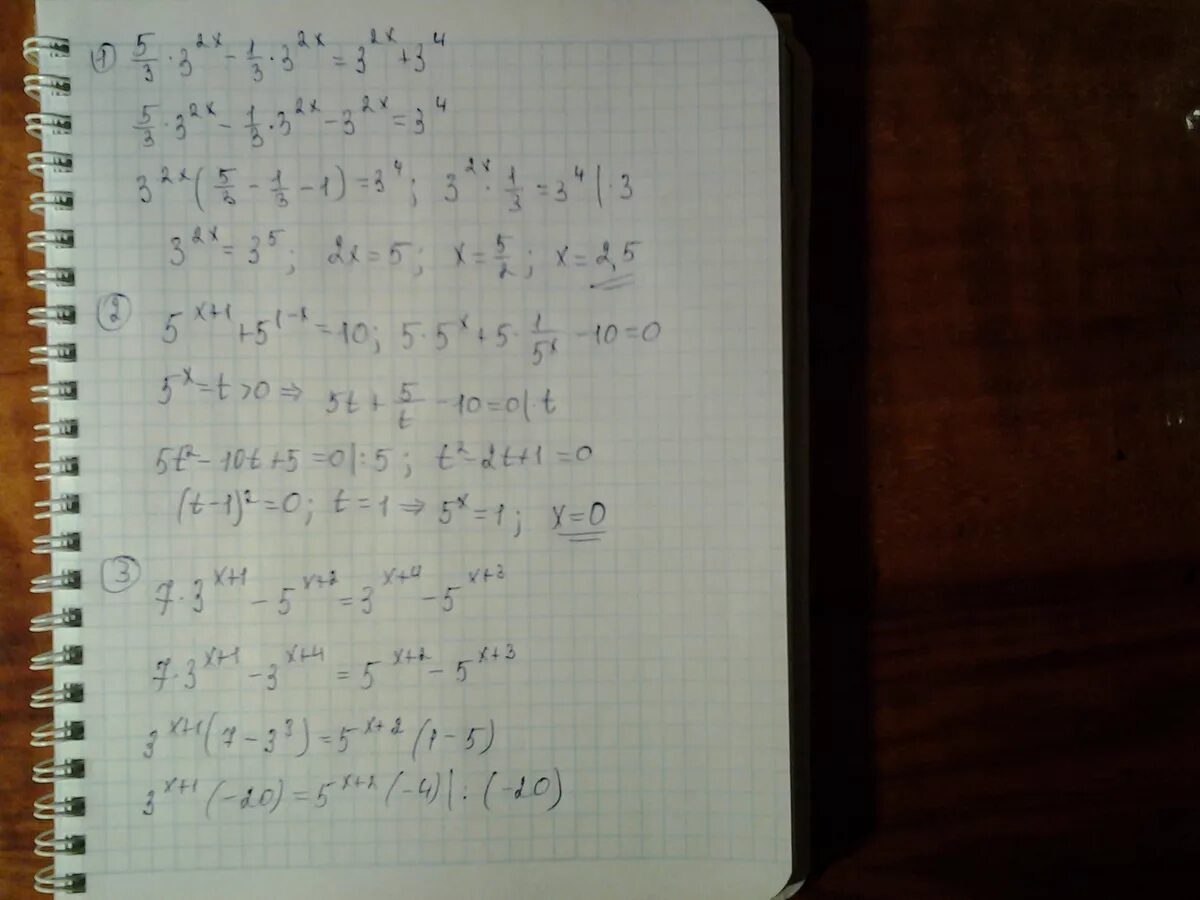 ① 5/3 · 3^{2x} - 1/3 · 3^{2x} = 3^{2x} + 3^4
5/3 · 3^{2x} - 1/3 · 3^{2x} - 3^{2x} = 3^4
3^{2x} (5/3 - 1/3 - 1) = 3^4; 3^{2x} · 1/3 = 3^4 | · 3
3^{2x} = 3^5; 2x = 5; x = 5/2; x = 2,5
② 5^{x+1} + 5^{1-x} = 10; 5 · 5^x + 5 · 1/5^x - 10 = 0
5^x = t > 0 ⇒ 5t + 5/t - 10 = 0 | · t
5t^2 - 10t + 5 = 0 | : 5; t^2 - 2t + 1 = 0
(t - 1)^2 = 0; t = 1 ⇒ 5^x = 1; x = 0
③ 7 · 3^{x+1} - 5^{x+2} = 3^{x+4} - 5^{x+3}
7 · 3^{x+1} - 3^{x+4} = 5^{x+2} - 5^{x+3}
3^{x+1} (7 - 3^3) = 5^{x+2} (1 - 5)
3^{x+1} (-20) = 5^{x+2} (-4) | : (-20)